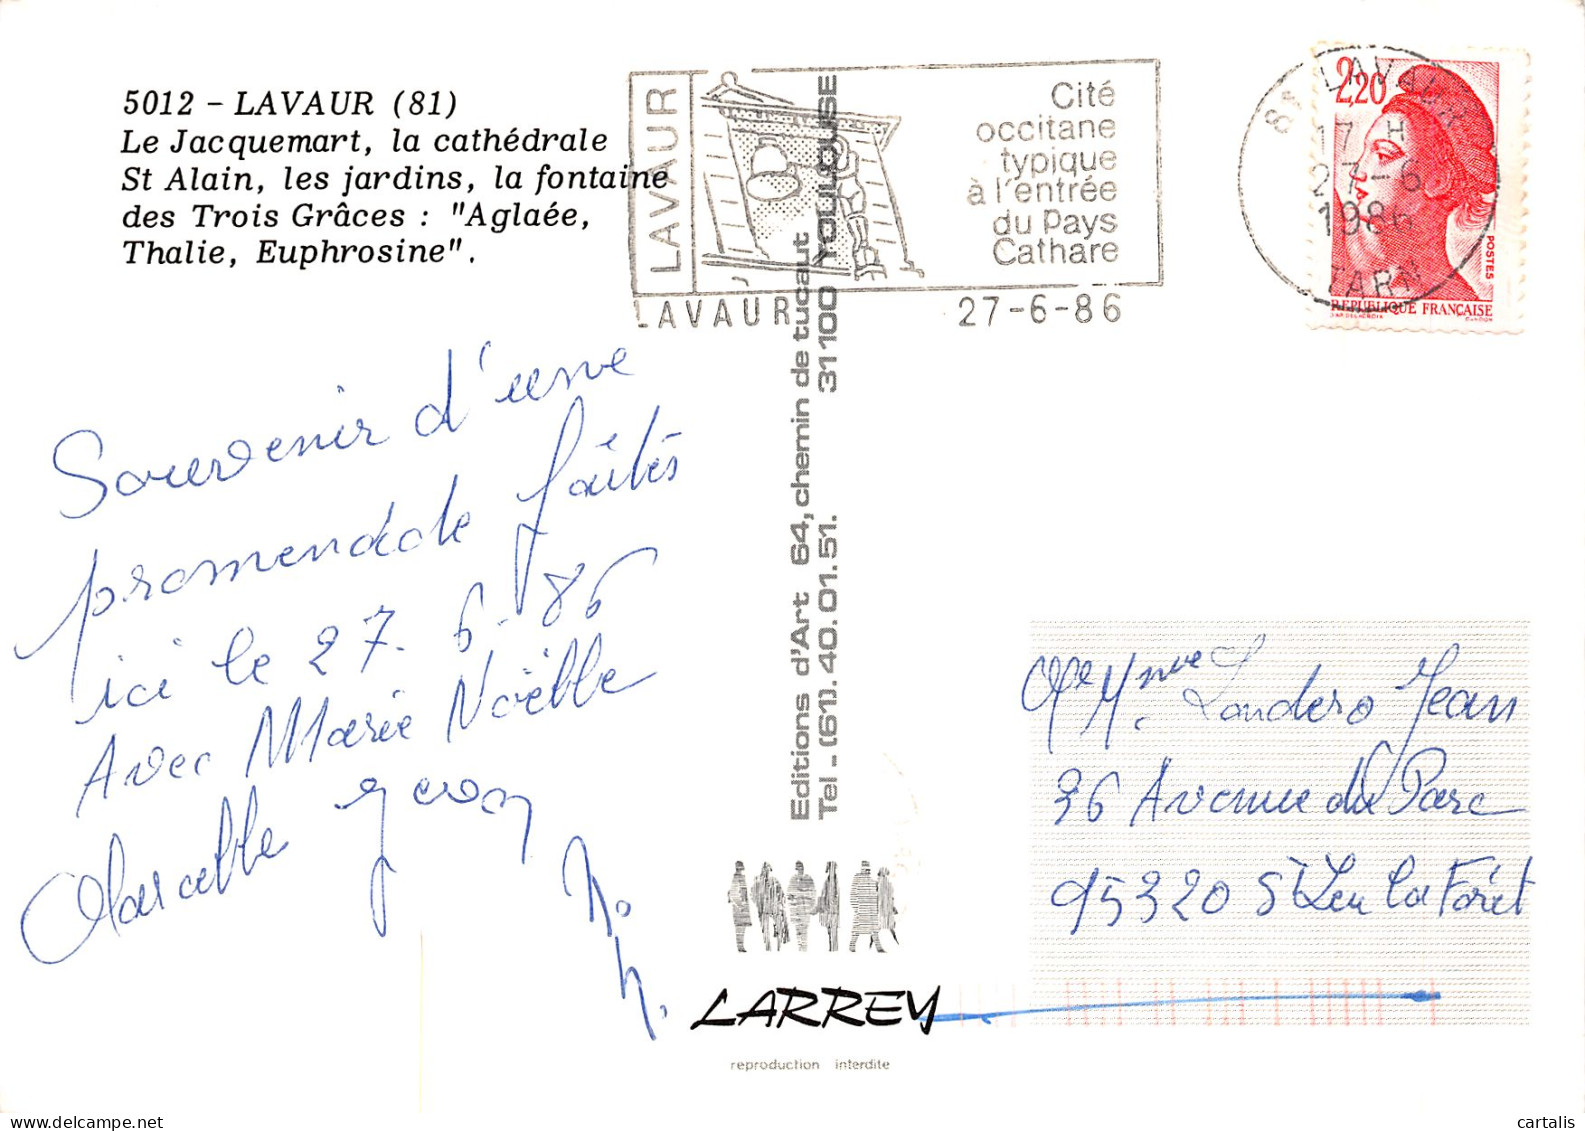 5012 - LAVAUR (81)
Le Jacquemart, la cathédrale
St Alain, les jardins, la fontaine
des Trois Grâces : "Aglaée,
Thalie, Euphrosine".
LAVAUR
Cité
occitane
typique
à l'entrée
du Pays
Cathare
LAVAUR 27-6-86
81 LAVAUR
17 H
27-6
1986
TARN
2,20
POSTES
REPUBLIQUE FRANÇAISE
Souvenir d'une
promenade faîtes
ici le 27. 6. 86
Avec Marie Noëlle
Marcelle
Editions d'Art 64, chemin de tucaut
Tel - (61). 40. 01. 51. 31100 TOULOUSE
Mme Landero Jean
36 Avenue du Parc
95320 St Leu la Forêt
LARREY
reproduction interdite
cartalis